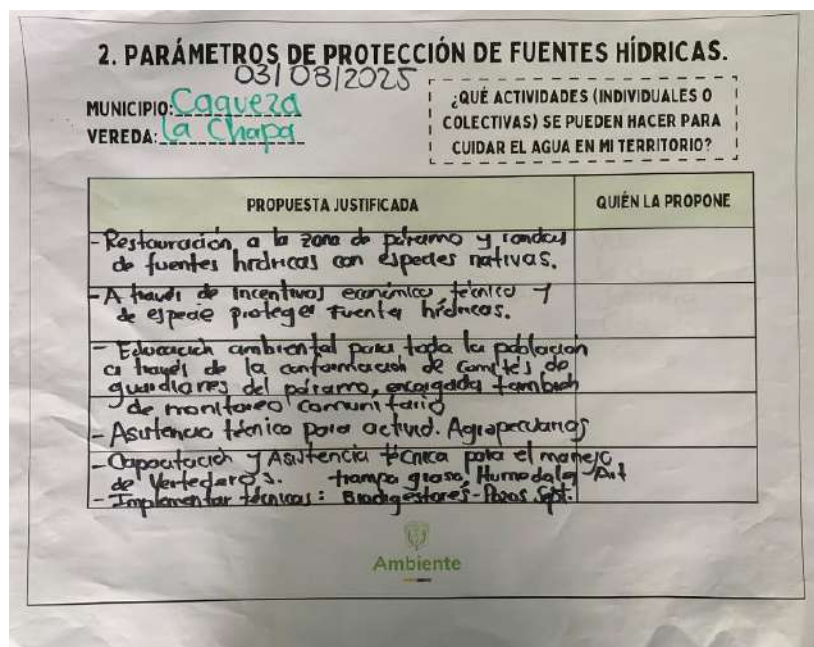 2. PARÁMETROS DE PROTECCIÓN DE FUENTES HÍDRICAS.
03/03/2025
MUNICIPIO: Caqueza
VEREDA: La Chapa
¿QUÉ ACTIVIDADES (INDIVIDUALES O
COLECTIVAS) SE PUEDEN HACER PARA
CUIDAR EL AGUA EN MI TERRITORIO?
PROPUESTA JUSTIFICADA
QUIÉN LA PROPONE
- Restauración a la zona de páramo y rondas
de fuentes hídricas con especies nativas.
- A través de incentivos económico, técnico y
de especie proteger fuente hídricas.
- Educación ambiental para toda la población
a través de la conformación de comités de
guardianes del páramo, encargada tambien
de monitoreo comunitario
- Asistencia técnica para activid. Agropecuarias
- Capacitación y Asistencia técnica para el manejo
de Vertederos. trampa grasa, Humedales Art
- Implementar técnicas: Biodigestores - Pozos Sept.
Ambiente